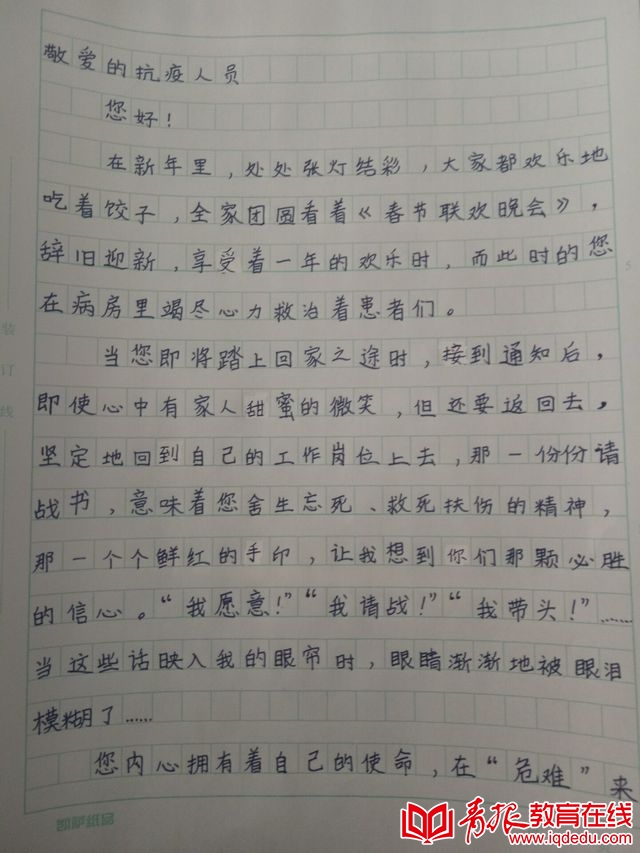 敬爱的抗疫人员
您好！
在新年里，处处张灯结彩，大家都欢乐地
吃着饺子，全家团圆看着《春节联欢晚会》，
辞旧迎新，享受着一年的欢乐时，而此时的您
在病房里竭尽心力救治着患者们。
当您即将踏上回家之途时，接到通知后，
即使心中有家人甜蜜的微笑，但还要返回去，
坚定地回到自己的工作岗位上去，那一份份请
战书，意味着您舍生忘死、救死扶伤的精神，
那一个个鲜红的手印，让我想到你们那颗必胜
的信心。“我愿意！”“我请战！”“我带头！”……
当这些话映入我的眼帘时，眼睛渐渐地被眼泪
模糊了……
您内心拥有着自己的使命，在“危难”来
装
订
线
5
青报教育在线
www.iqdedu.com